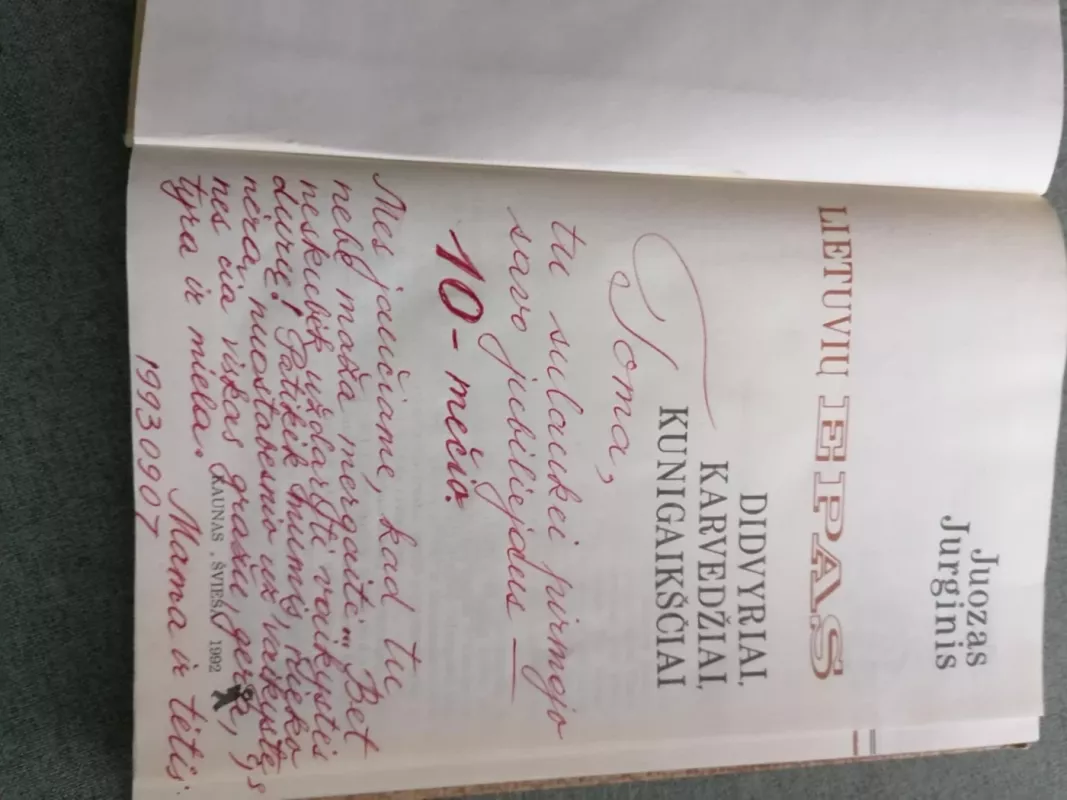 Juozas
Jurginis
LIETUVIŲ EPAS
DIDVYRIAI,
KARVEDŽIAI,
KUNIGAIKŠČIAI
Toma,
tu sulaukei pirmojo
savo jubiliejaus —
10-mečio.
Mes jaučiame, kad tu
nebe maža mergaitė... Bet
neskubėk uždaryti vaikystės
durų! Patikėk mumis, nieko
nėra nuostabesnio už vaikystę,
nes čia viskas gražu, gera,
tyra ir miela.
KAUNAS ŠVIESA 1992
Mama ir tėtis.
1993 09 07